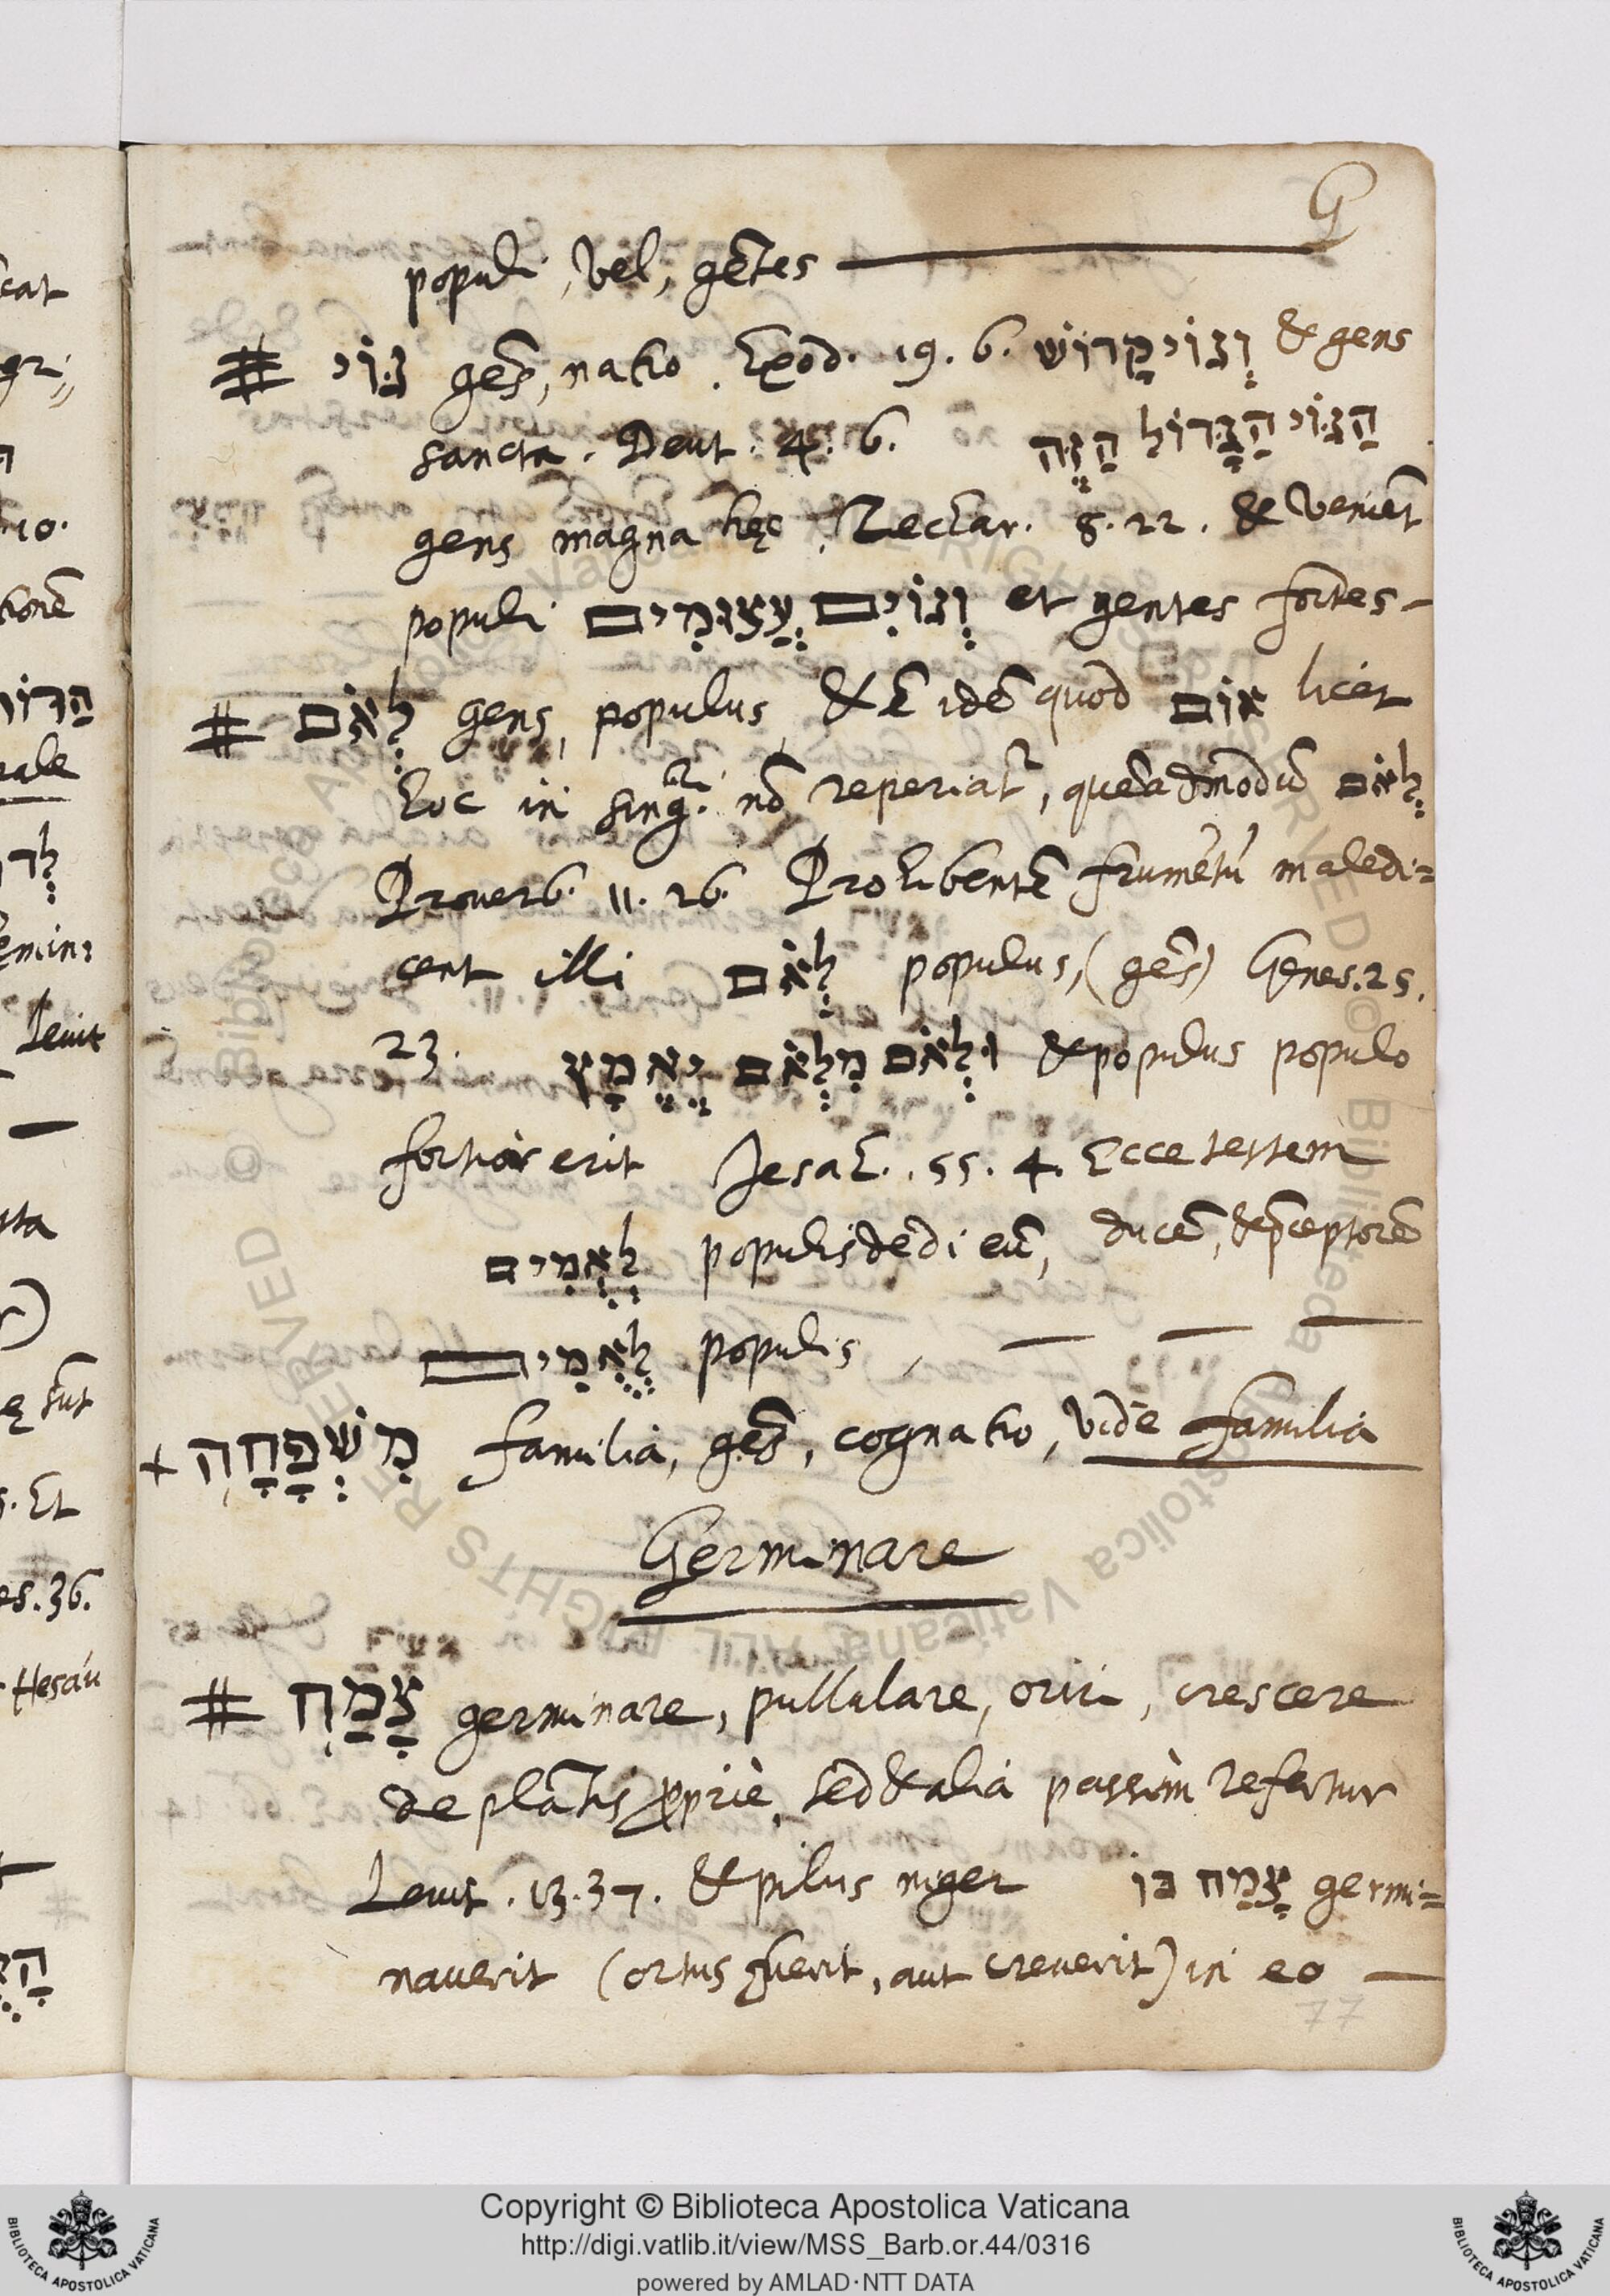 G
populi, vel, gẽtes
# גּוֹי gẽs, natio. Exod. 19. 6. וְגוֹי קָדוֹשׁ & gens
sancta. Deut. 4. 6. הַגּוֹי הַגָּדוֹל הַזֶּה
gens magna hęc. Zechar. 8. 22. & veniẽt
populi וְגוֹיִם עֲצוּמִים et gentes fortes
# לְאֹם gens, populus, & ẽ idẽ quod אוֹם licet
hoc in sing. nõ reperiat, quẽadmodũ לְאֹם
Proverb. 11. 26. Prohibentẽ frumẽtũ maledi=
cent illi לְאֹם populus, (gẽs) Genes. 25.
23. וּלְאֹם מִלְאֹם יֶאֱמָץ & populus populo
fortior erit Jesah. 55. 4. Ecce testem
לְאֻמִּים populis dedi eũ, ducẽ, & p̃ceptorẽ
לְאֻמִּים populis,
+ מִשְׁפָּחָה familia, gẽs, cognatio, vide familia
Germinare
# צָמַח germinare, pullulare, oriri, crescere
de plãtis propriè, sed & alia passim refertur
Levit. 13. 37. & pilus niger צָמַח בּוֹ germi=
naverit (ortus fuerit, aut creverit) in eo
77
cat
gr
10.
tionẽ
rale
Levit
sta
ę sũt
s. Et
es. 36.
Hesau
Copyright © Biblioteca Apostolica Vaticana
http://digi.vatlib.it/view/MSS_Barb.or.44/0316
powered by AMLAD·NTT DATA
BIBLIOTECA APOSTOLICA VATICANA
BIBLIOTECA APOSTOLICA VATICANA